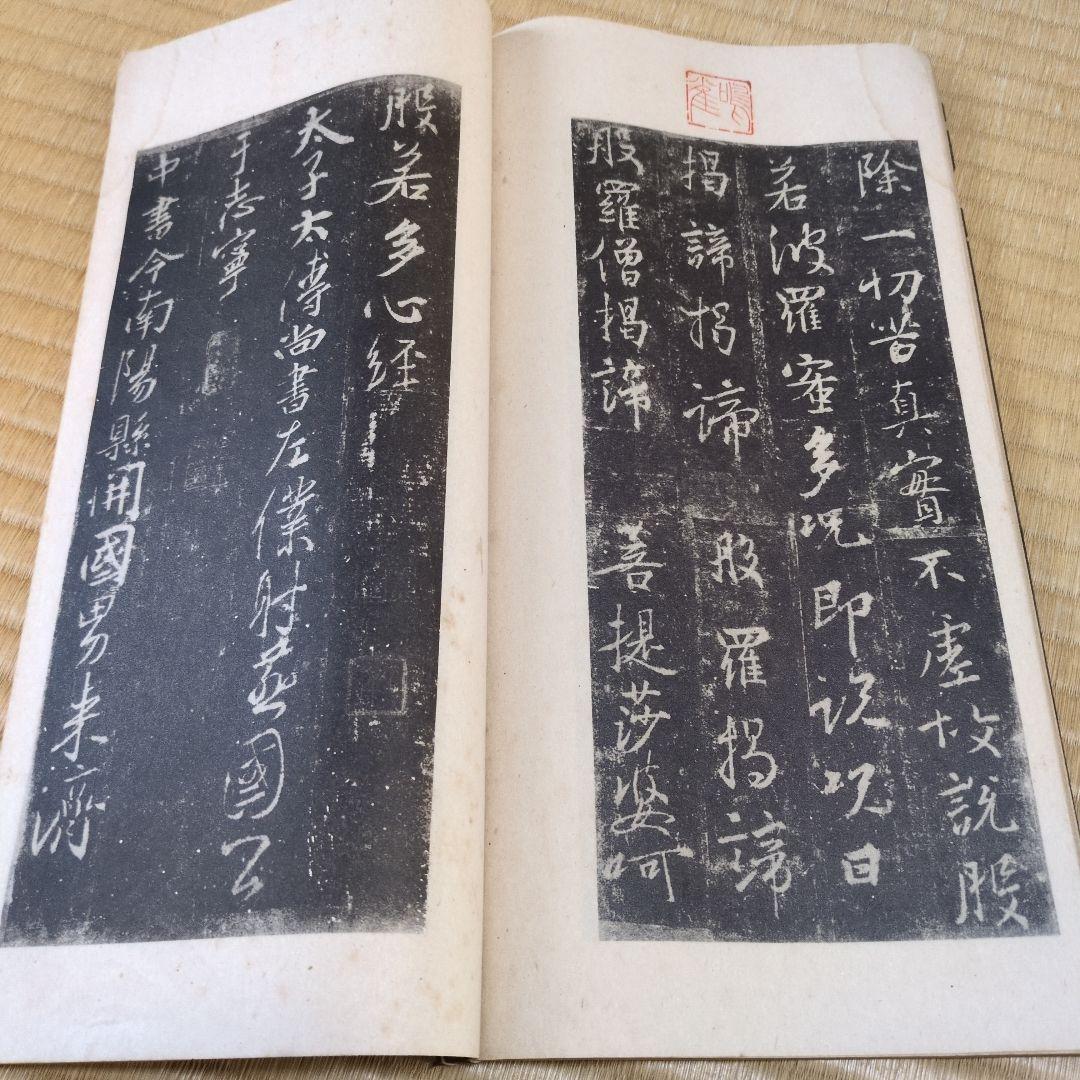 除一切苦真實不虛故說般
若波羅蜜多呪即說呪曰
揭諦揭諦 般羅揭諦
般羅僧揭諦 菩提莎婆呵
般若多心經
太子太傅尚書左僕射燕國公
于志寧
中書令南陽縣開國男来濟